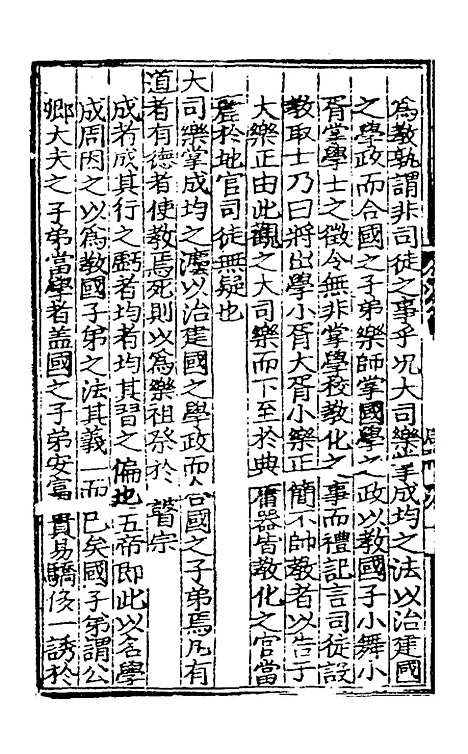 為教孰謂非司徒之事乎况大司樂掌成均之法以治建國
之學政而合國之子弟樂師掌國學之政以教國子小舞小
胥掌學士之徵令無非掌學校教化之事而禮記言司徒設
教取士乃曰將出學小胥大胥小樂正簡不帥教者以告于
大樂正由此觀之大司樂而下至於典庸器皆教化之官當
屬於地官司徒無疑也
大司樂掌成均之灋以治建國之學政而合國之子弟焉凡有
道者有德者使教焉死則以為樂祖祭於瞽宗
成者成其行之虧者均者均其習之偏也五帝即此以名學
成周因之以為教國子弟之法其義一而已矣國子弟謂公
卿大夫之子弟當學者盖國之子弟安富貴易驕侈一誘於